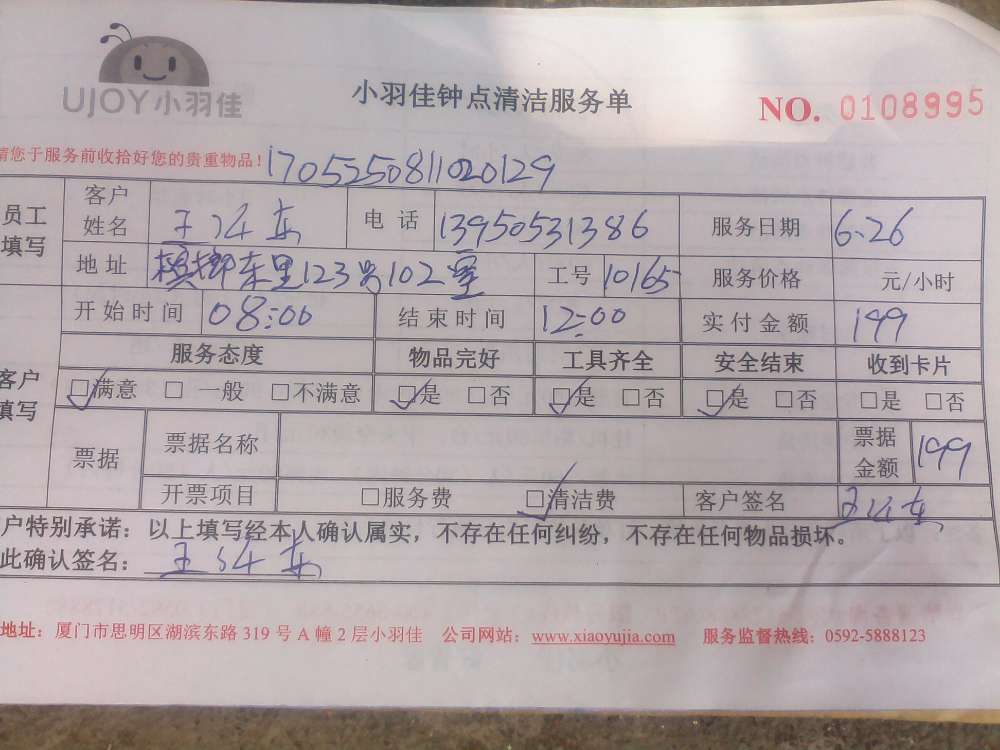 UJOY小羽佳
小羽佳钟点清洁服务单
NO. 0108995
请您于服务前收拾好您的贵重物品！1705525081102 0129
员工填写 客户姓名 王 东 电话 13950531386 服务日期 6.26
地址 东里123号102室 工号 10165 服务价格 元/小时
开始时间 08:00 结束时间 12:00 实付金额 199
客户填写 服务态度 物品完好 工具齐全 安全结束 收到卡片
☑满意 □一般 □不满意 ☑是 □否 ☑是 □否 ☑是 □否 □是 □否
票据 票据名称 票据金额 199
开票项目 □服务费 ☑清洁费 客户签名 王 东
户特别承诺：以上填写经本人确认属实，不存在任何纠纷，不存在任何物品损坏。
此确认签名：王 东
地址：厦门市思明区湖滨东路 319 号 A 幢 2 层小羽佳 公司网站：www.xiaoyujia.com 服务监督热线：0592-5888123